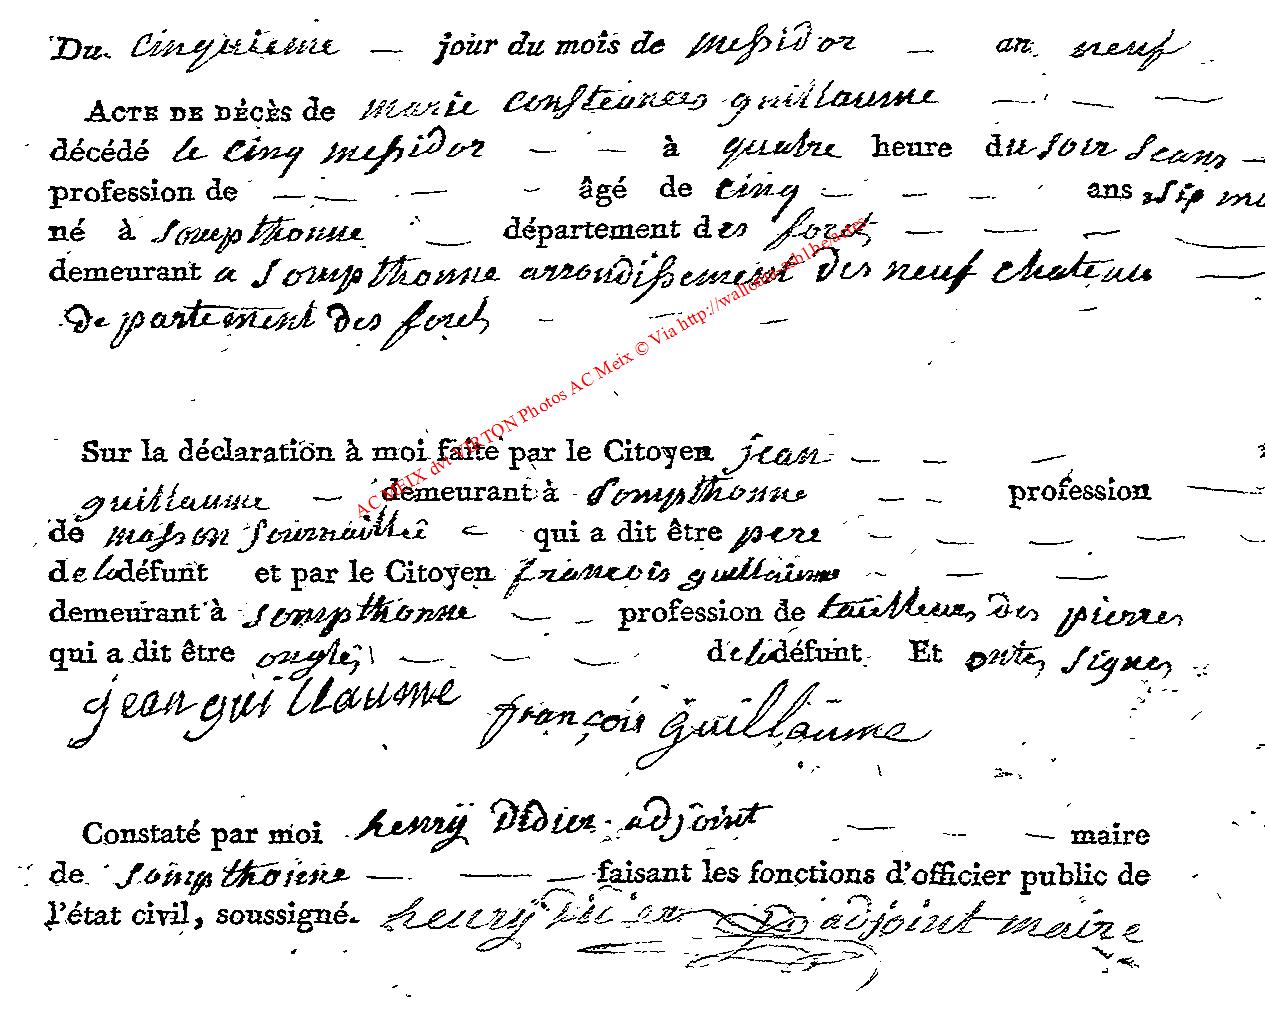 Du cinquieme — jour du mois de messidor — an neuf
ACTE DE DÉCÈS de marie guillaume — — —
décédé le cinq messidor — — à quatre heure du soir scans —
profession de — — — âgé de cinq — — — ans
né à sompthonne — département des forets — — —
demeurant a sompthonne arrondissement des neuf chateau —
departement des forets — — —
Sur la déclaration à moi faite par le Citoyen jean — — —
guillaume — demeurant à sompthonne — — profession —
de masson journaillié — qui a dit être pere — — — —
de la défunt et par le Citoyen francois guillaume — — —
demeurant à sompthonne — — profession de tailleur des pierres
qui a dit être ongles — — — de la défunt. Et ontes signes
jean guillaume françois guillaume
Constaté par moi henrÿ Didier adjoint — — — maire
de sompthonne — — — faisant les fonctions d'officier public de
l'état civil, soussigné. henrÿ Didier adjoint maire
AC MEIX dvt VIRTON Photos AC Meix © Via